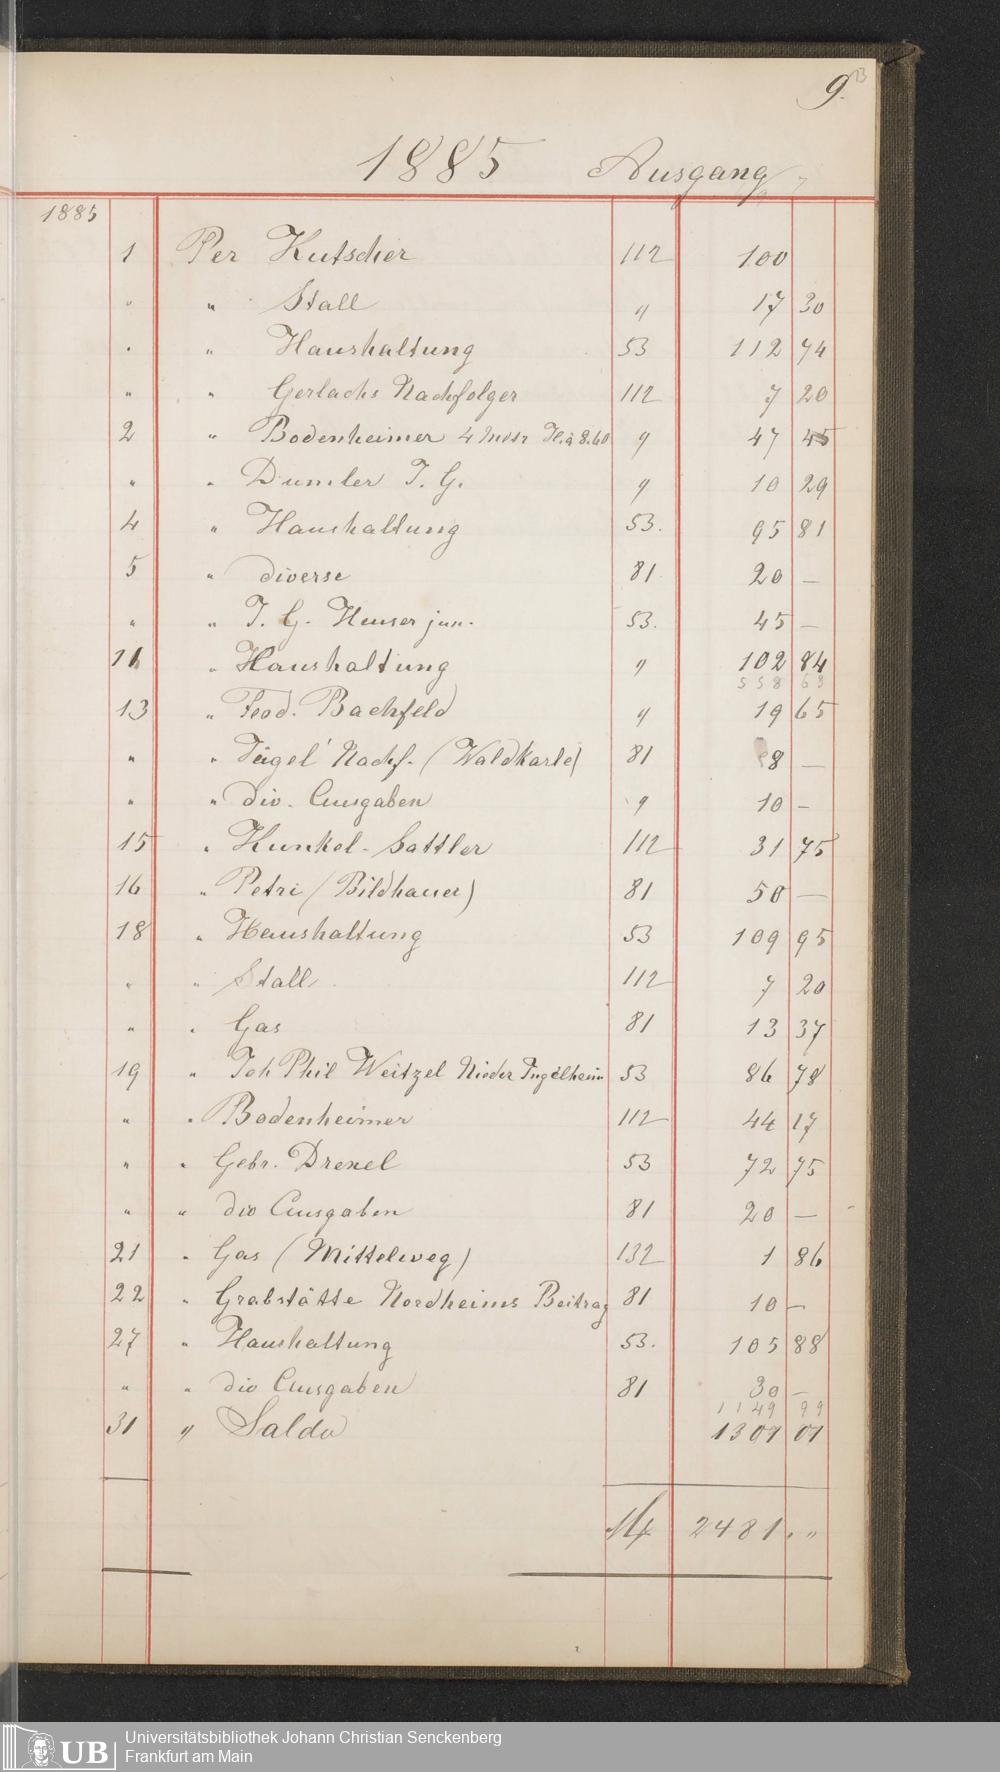 9. 13
1885 Ausgang
1885
1 Per Kutscher 112 100
" " Stall " 17 30
" " Haushaltung 53 112 74
" " Gerlachs Nachfolger 112 7 20
2 " Bodenheimer 4 à 8.60 " 47 45
" " Dumler J. G. " 10 29
4 " Haushaltung 53. 95 81
5 " diverse 81 20 —
" " J. G. Heuser jun. 53. 45 —
11 " Haushaltung " 102 84
558 63
13 " Feod. Bachfeld " 19 65
" " Tügel' Nachf. (Waldkarle) 81 8 —
" " div. Ausgaben " 10 —
15 " Kunkel-Sattler 112 31 75
16 " Petri (Bildhauer) 81 50 —
18 " Haushaltung 53 109 95
" " Stall 112 7 20
" " Gas 81 13 37
19 " Joh Phil Weitzel Nieder Ingelheim 53 86 78
" " Bodenheimer 112 44 17
" " Gebr. Drexel 53 72 75
" " div Ausgaben 81 20 —
21 " Gas (Mittelweg) 132 1 86
22 " Grabstätte Nordheims Beitrag 81 10 —
27 " Haushaltung 53. 105 88
" " div Ausgaben 81 30 —
1149 99
31 " Saldo 1301 01
M 2481. "
Universitätsbibliothek Johann Christian Senckenberg
Frankfurt am Main
UB